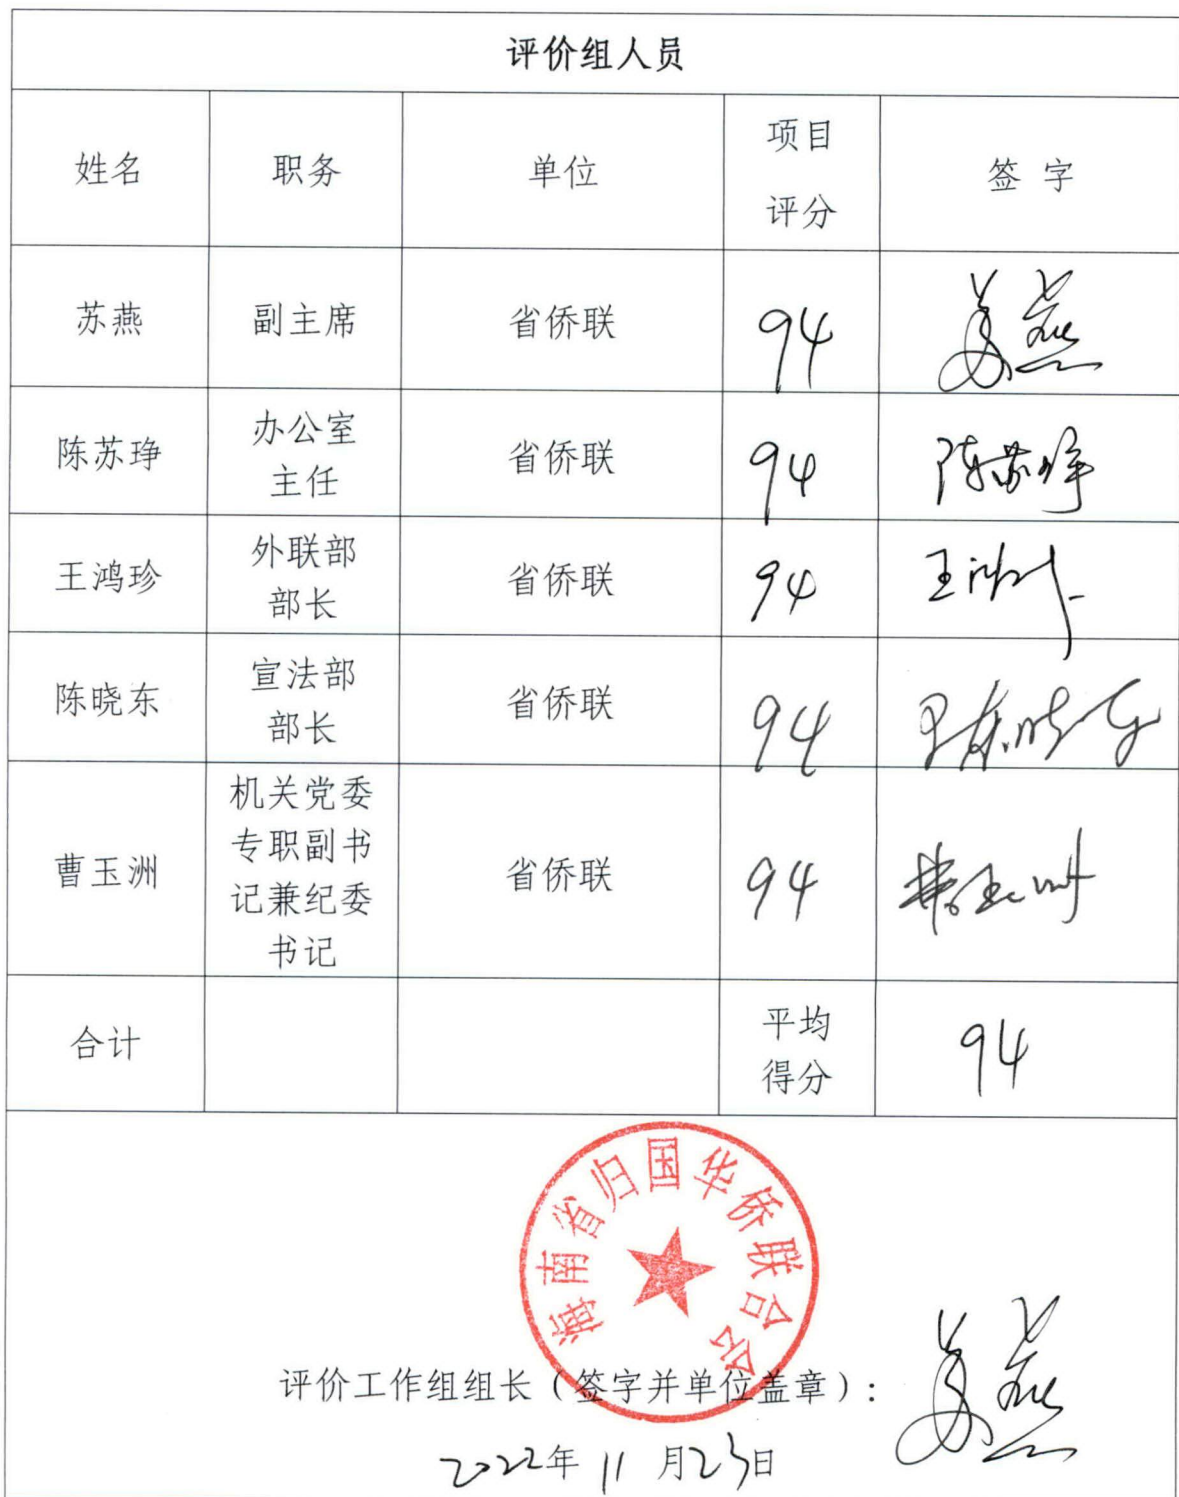 评价组人员
姓名 职务 单位 项目 评分 签 字
苏燕 副主席 省侨联 94 苏燕
陈苏琤 办公室 主任 省侨联 94 陈苏琤
王鸿珍 外联部 部长 省侨联 94 王鸿珍
陈晓东 宣法部 部长 省侨联 94 陈晓东
曹玉洲 机关党委 专职副书 记兼纪委 书记 省侨联 94 曹玉洲
合计 平均 得分 94
海南省归国华侨联合会
评价工作组组长（签字并单位盖章）： 苏燕
2022年 11 月23日